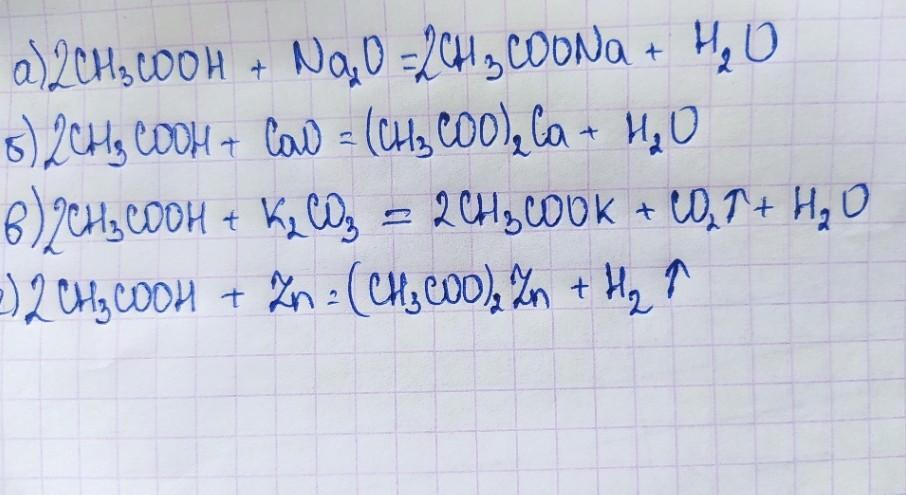 а) 2CH₃COOH + Na₂O = 2CH₃COONa + H₂O
б) 2CH₃COOH + CaO = (CH₃COO)₂Ca + H₂O
в) 2CH₃COOH + K₂CO₃ = 2CH₃COOK + CO₂↑ + H₂O
г) 2CH₃COOH + Zn = (CH₃COO)₂Zn + H₂↑